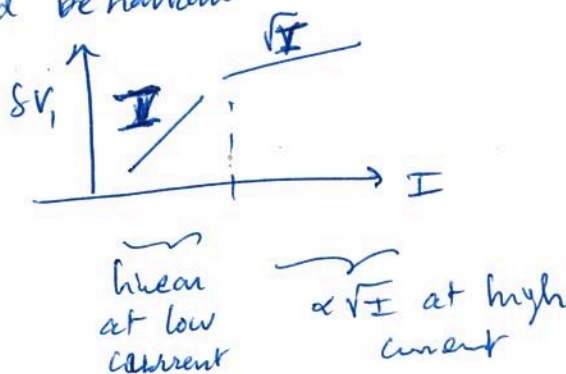 √I
δV₁
I
I
linear
at low
current
∝ √I at high
current